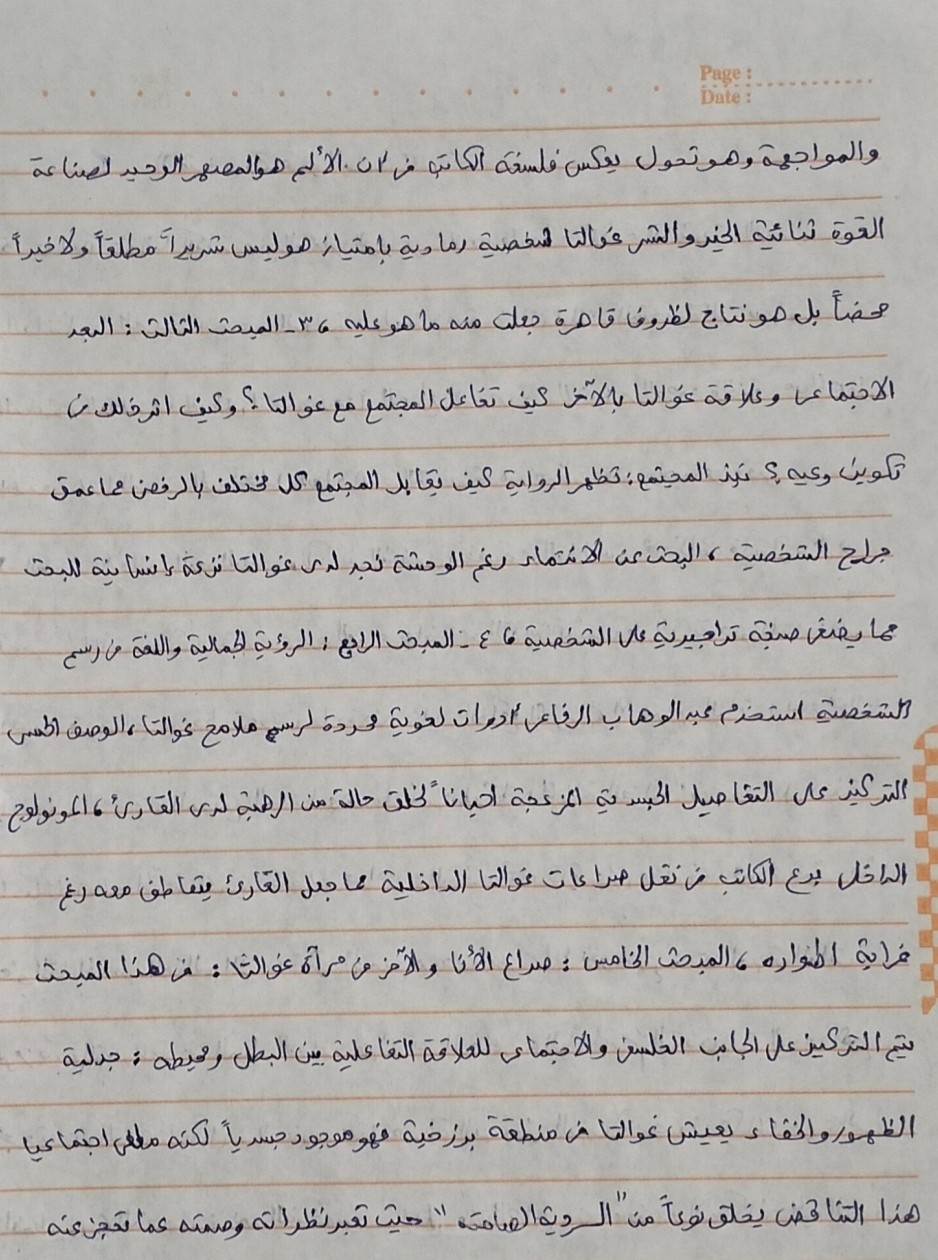 Page :
Date :
والمواجهة وهو تحول يعكس فلسفة الكاتب في ان الألم هو المصهر الوحيد لصناعة
القوة ثنائية الخير والشر غوالتا شخصية رمادية بامتياز هو ليس شريراً مطلقاً ولا خيراً
محضاً بل هو نتاج لظروف قاهرة جعلت منه ما هو عليه ، ٣- المبحث الثالث : البعد
الاجتماعي وعلاقة غوالتا بالآخر كيف تفاعل المجتمع مع غوالتا ؟ وكيف اثر ذلك في
تكوين وعيه ؟ نبذ المجتمع : تظهر الرواية كيف يقابل المجتمع كل مختلف بالرفض مما عمق
جراح الشخصية ، البحث عن الانتماء رغم الوحشة نجد لدى غوالتا نزعة إنسانية للبحث
مما يضفي صبغة تراجيدية على الشخصية ، ٤ - المبحث الرابع : الرؤية الجمالية واللغة في رسم
الشخصية استخدم عبد الوهاب الرفاعي أدوات لغوية محددة لرسم ملامح غوالتا ، الوصف الحسي
التركيز على التفاصيل الجسدية المزعجة احياناً لخلق حالة من الرهبة لدى القارئ ، المونولوج
الداخلي برع الكاتب في نقل صراعات غوالتا الداخلية مما جعل القارئ يتعاطف معه رغم
غرابة اطواره ، المبحث الخامس : صراع الأنا والآخر في مرآة غوالتا : في هذا المبحث
يتم التركيز على الجانب الفلسفي والاجتماعي للعلاقة التفاعلية بين البطل ومحيطه : جدلية
الظهور والخفاء يعيش غوالتا في منطقة برزخية فهو موجود جسدياً لكنه ملغى اجتماعيا
هذا التناقض يخلق نوعاً من "السردية الصامتة" حيث تعبر نظراته وصمته عما تعجز عنه